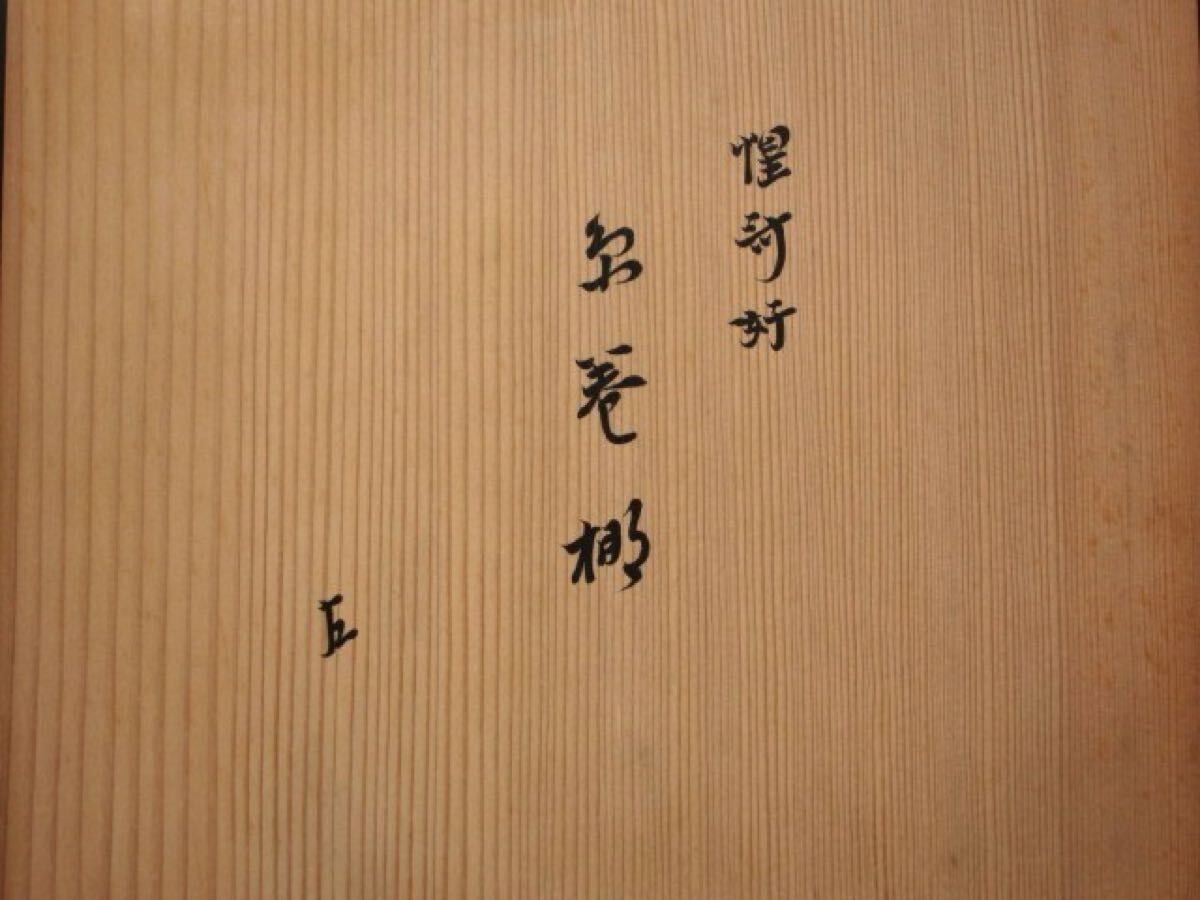 惺斎好
糸巻棚
左